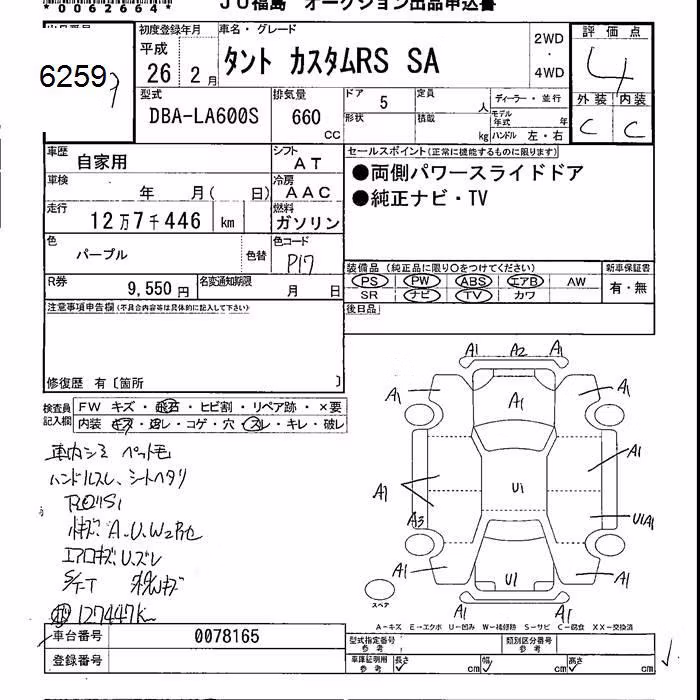 *0062664*
JU福島 オークション出品申込書
6259
初度登録年月
平成
26 2月
車名・グレード
タント カスタムRS SA
2WD
・
4WD
評価点
4
外装 内装
C C
型式
DBA-LA600S
排気量
660
CC
ドア 5
定員 人
ディーラー・並行
形状
積載 kg
モデル年式 年
ハンドル 左・右
車歴 自家用
シフト AT
車検 年 月( 日)
冷房 AAC
走行 12万7千446 km
燃料 ガソリン
色 パープル
色替
色コード P17
R券 9,550円
名変通知期限 月 日
セールスポイント(正常に機能するものに限ります)
●両側パワースライドドア
●純正ナビ・TV
装備品(純正品に限り○をつけてください)
新車保証書
PS PW ABS エアB AW
SR ナビ TV カワ
有・無
後日品
注意事項申告欄(不具合内容等は具体的に記入して下さい)
修復歴 有〔箇所 〕
検査員記入欄
FW キズ・飛石・ヒビ割・リペア跡・×要
内装 キズ・汚レ・コゲ・穴・スレ・キレ・破レ
車内シミ ペット毛
ハンドルスレ、シートヘタリ
小キズ A.U.W2
エアロキズU.ズレ
127447K
A1 A2 A1
A1 A1 A1
A1 A1
U1
A3 U1A1
A1 U1 A1
A1 A1
スペア
A-キズ E-エクボ U-凹み W-補修跡 S-サビ C-腐食 XX-交換済
車台番号 0078165
登録番号
型式指定番号 参考
類別区分番号 参考
車庫証明用 参考
長さ cm 幅 cm 高さ cm